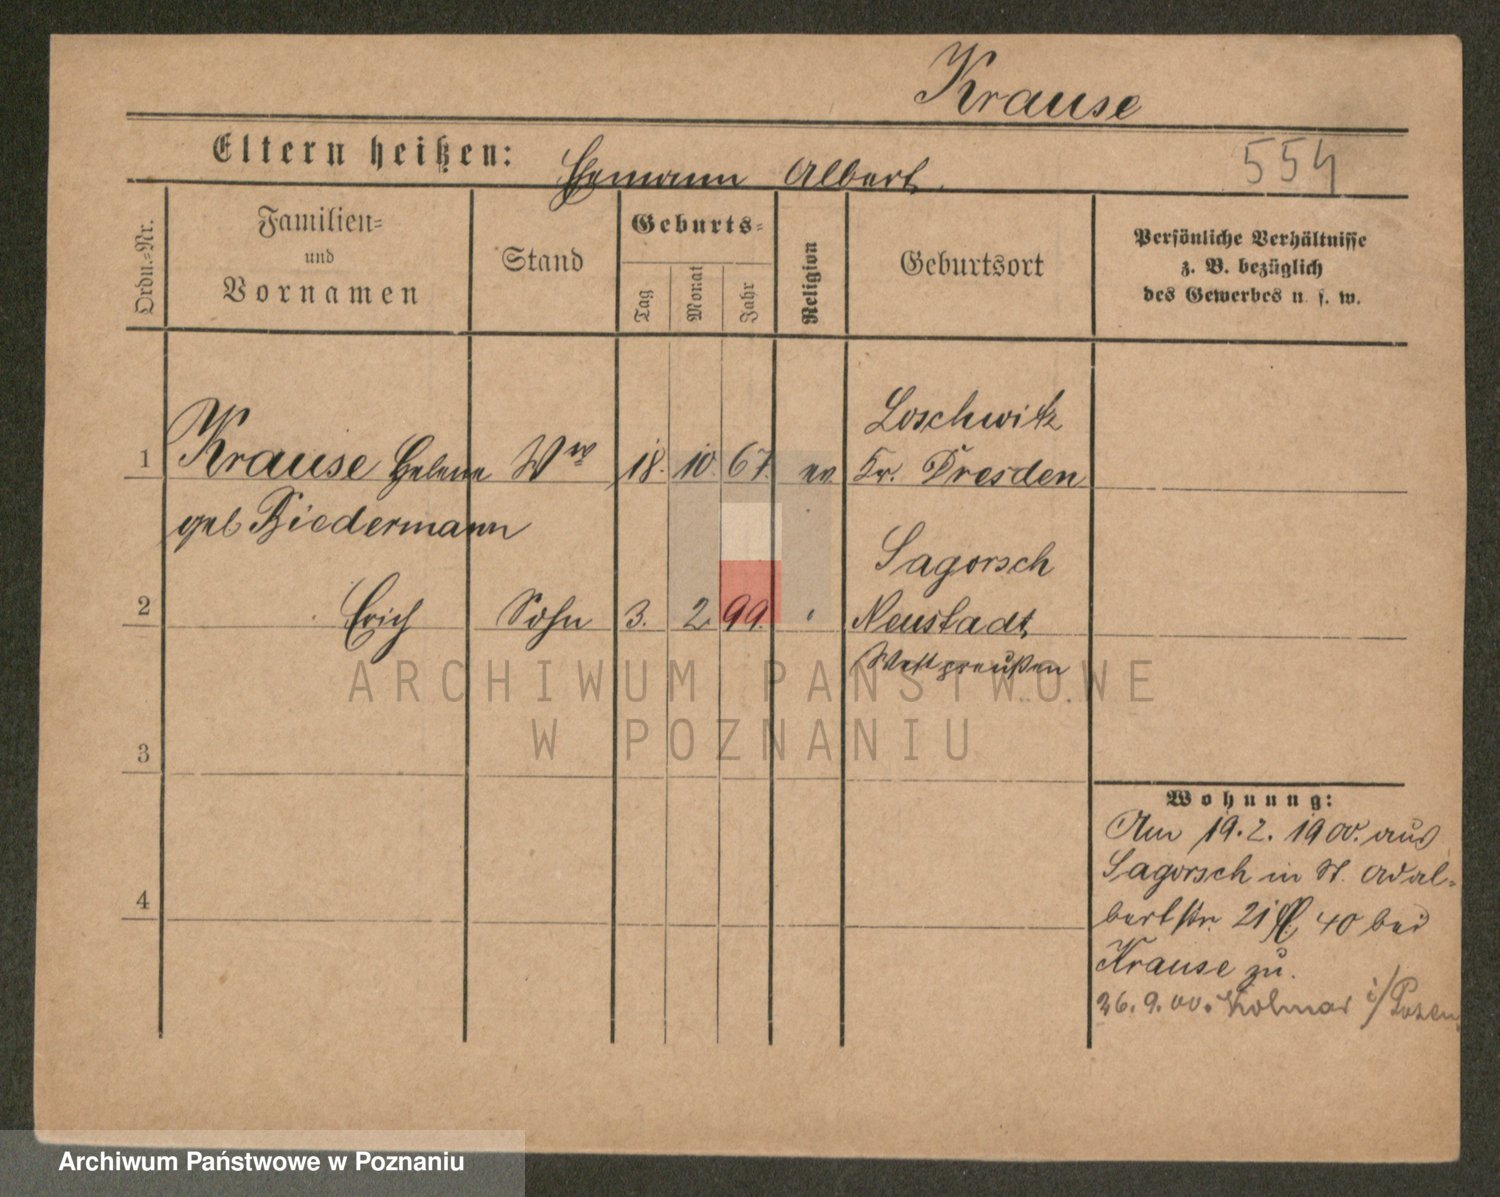 Krause
Eltern heißen: Hermann Albert.
554
Ordn.-Nr.
Familien=
und
Vornamen
Stand
Geburts=
Tag
Monat
Jahr
Religion
Geburtsort
Persönliche Verhältnisse
z. B. bezüglich
des Gewerbes u. s. w.
Loschwitz
1 Krause Helene Ww 18. 10. 67. ev Kr. Dresden
geb Biedermann
Sagorsch
2 Erich Sohn 3. 2. 99. " Neustadt
Westpreußen
3
4
Wohnung:
Am 19.2.1900. aus
Sagorsch in St. Adal=
bertstr. 21 40 bei
Krause zu.
26.9.00. Kolmar i/Posen
ARCHIWUM PAŃSTWOWE
W POZNANIU
Archiwum Państwowe w Poznaniu